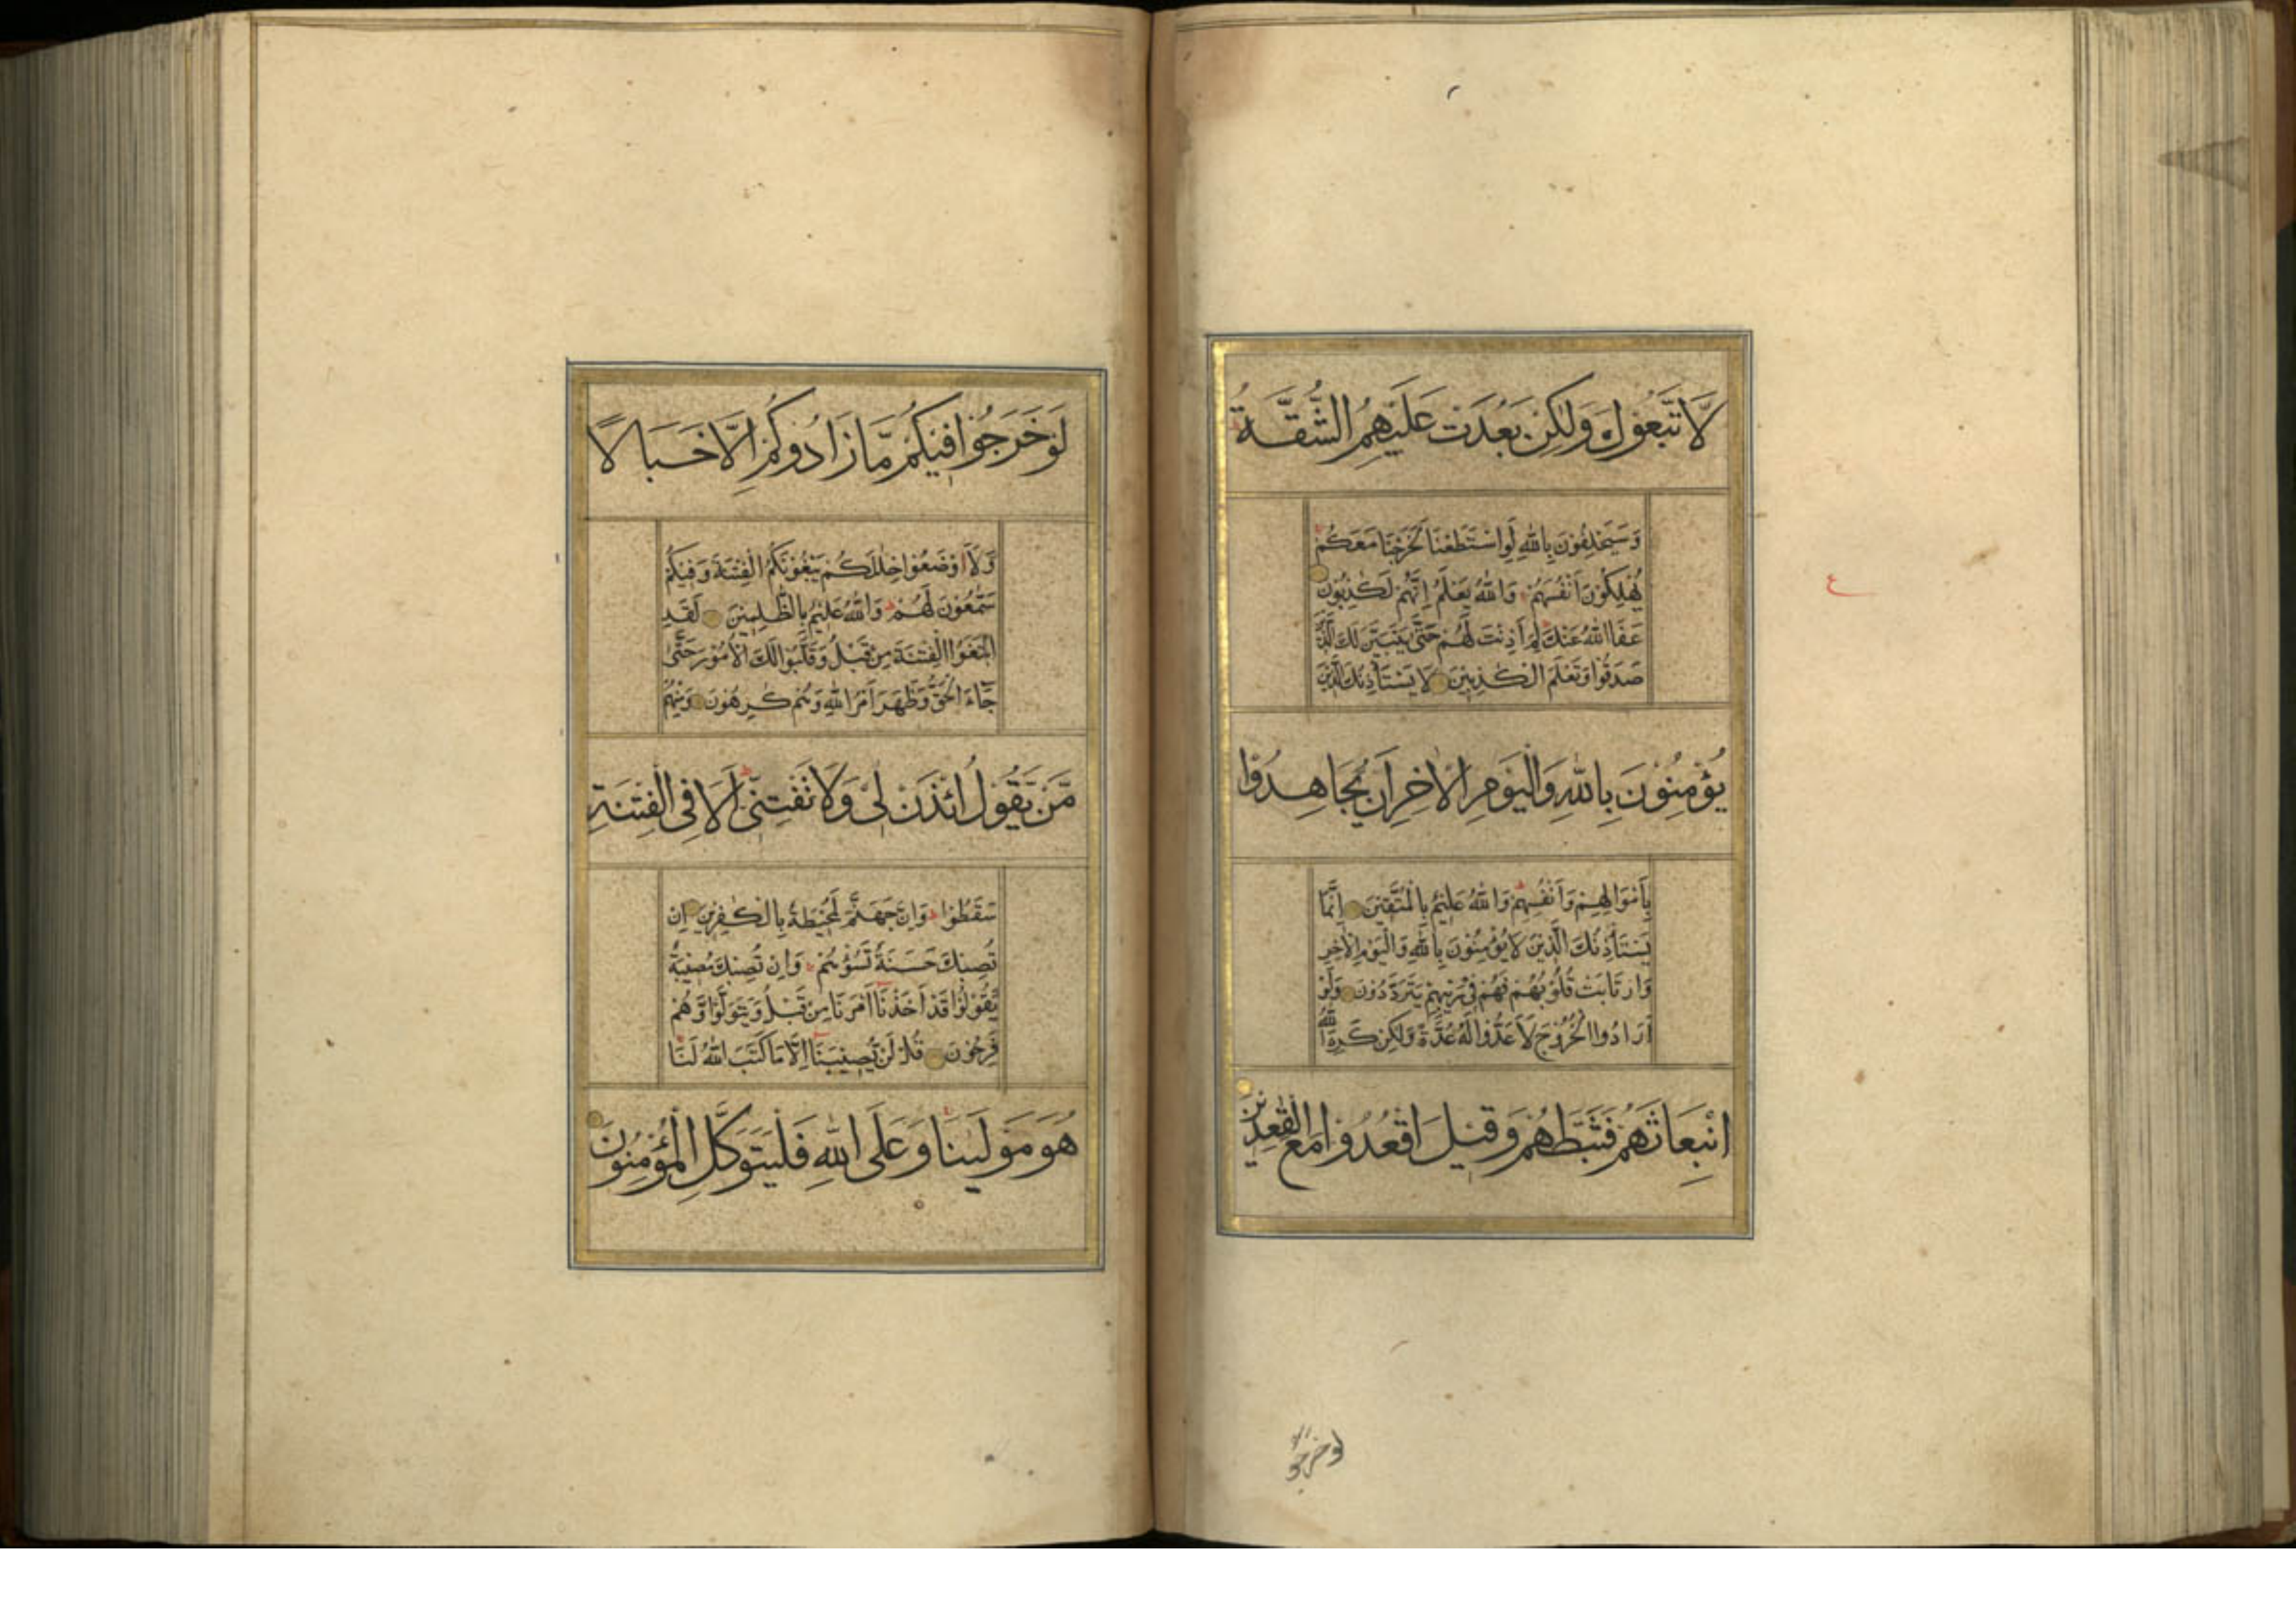 لَّاتَّبَعُوكَ وَلٰكِنْ بَعُدَتْ عَلَيْهِمُ الشُّقَّةُ
وَسَيَحْلِفُوْنَ بِاللّٰهِ لَوِاسْتَطَعْنَا لَخَرَجْنَا مَعَكُمْ
يُهْلِكُوْنَ اَنْفُسَهُمْ وَاللّٰهُ يَعْلَمُ اِنَّهُمْ لَكٰذِبُوْنَ
عَفَا اللّٰهُ عَنْكَ لِمَ اَذِنْتَ لَهُمْ حَتّٰى يَتَبَيَّنَ لَكَ الَّذِيْنَ
صَدَقُوْا وَتَعْلَمَ الْكٰذِبِيْنَ لَا يَسْتَأْذِنُكَ الَّذِيْنَ
يُؤْمِنُوْنَ بِاللّٰهِ وَالْيَوْمِ الْاٰخِرِ اَنْ يُّجَاهِدُوْا
بِاَمْوَالِهِمْ وَاَنْفُسِهِمْ وَاللّٰهُ عَلِيْمٌ بِالْمُتَّقِيْنَ اِنَّمَا
يَسْتَأْذِنُكَ الَّذِيْنَ لَا يُؤْمِنُوْنَ بِاللّٰهِ وَالْيَوْمِ الْاٰخِرِ
وَارْتَابَتْ قُلُوْبُهُمْ فَهُمْ فِيْ رَيْبِهِمْ يَتَرَدَّدُوْنَ وَلَوْ
اَرَادُوا الْخُرُوْجَ لَاَعَدُّوْا لَهُ عُدَّةً وَّلٰكِنْ كَرِهَ اللّٰهُ
انْبِعَاثَهُمْ فَثَبَّطَهُمْ وَقِيْلَ اقْعُدُوْا مَعَ الْقٰعِدِيْنَ
لوخرجو
لَوْ خَرَجُوْا فِيْكُمْ مَّا زَادُوْكُمْ اِلَّا خَبَالًا
وَّلَاَاوْضَعُوْا خِلٰلَكُمْ يَبْغُوْنَكُمُ الْفِتْنَةَ وَفِيْكُمْ
سَمّٰعُوْنَ لَهُمْ وَاللّٰهُ عَلِيْمٌ بِالظّٰلِمِيْنَ لَقَدِ
ابْتَغَوُا الْفِتْنَةَ مِنْ قَبْلُ وَقَلَّبُوْا لَكَ الْاُمُوْرَ حَتّٰى
جَآءَ الْحَقُّ وَظَهَرَ اَمْرُ اللّٰهِ وَهُمْ كٰرِهُوْنَ وَمِنْهُمْ
مَّنْ يَّقُوْلُ ائْذَنْ لِّيْ وَلَا تَفْتِنِّيْ اَلَا فِى الْفِتْنَةِ
سَقَطُوْا وَاِنَّ جَهَنَّمَ لَمُحِيْطَةٌ بِالْكٰفِرِيْنَ اِنْ
تُصِبْكَ حَسَنَةٌ تَسُؤْهُمْ وَاِنْ تُصِبْكَ مُصِيْبَةٌ
يَّقُوْلُوْا قَدْ اَخَذْنَا اَمْرَنَا مِنْ قَبْلُ وَيَتَوَلَّوْا وَّهُمْ
فَرِحُوْنَ قُلْ لَنْ يُّصِيْبَنَا اِلَّا مَا كَتَبَ اللّٰهُ لَنَا
هُوَ مَوْلٰينَا وَعَلَى اللّٰهِ فَلْيَتَوَكَّلِ الْمُؤْمِنُوْنَ